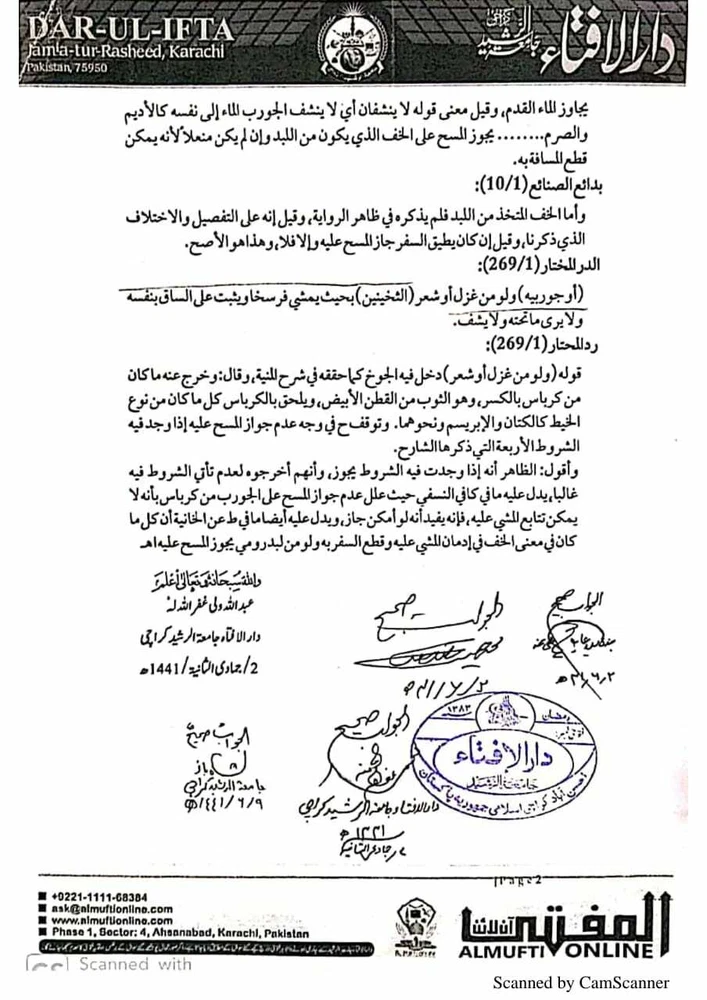 DAR-UL-IFTA
Jamia-tur-Rasheed, Karachi
Pakistan, 75950
دارالافتاء
جامعۃ الرشید کراچی
يجاوز الماء القدم، وقيل معنى قوله لا ينشفان أي لا ينشف الجورب الماء إلى نفسه كالأديم
والصرم........ يجوز المسح على الخف الذي يكون من اللبد وإن لم يكن منعلاً لأنه يمكن
قطع المسافة به.
بدائع الصنائع (10/1):
وأما الخف المتخذ من اللبد فلم يذكره في ظاهر الرواية، وقيل إنه على التفصيل والاختلاف
الذي ذكرنا، وقيل إن كان يطيق السفر جاز المسح عليه وإلا فلا، وهذا هو الأصح.
الدر المختار (269/1):
(أو جوربيه) ولو من غزل أو شعر (الثخينين) بحيث يمشي فرسخا ويثبت على الساق بنفسه
ولا يرى ما تحته ولا يشف.
رد المحتار (269/1):
قوله (ولو من غزل أو شعر) دخل فيه الجوخ كما حققه في شرح المنية، وقال: وخرج عنه ما كان
من كرباس بالكسر، وهو الثوب من القطن الأبيض، ويلحق بالكرباس كل ما كان من نوع
الخيط كالكتان والإبريسم ونحوهما. وتوقف ح في وجه عدم جواز المسح عليه إذا وجد فيه
الشروط الأربعة التي ذكرها الشارح.
وأقول: الظاهر أنه إذا وجدت فيه الشروط يجوز، وأنهم أخرجوه لعدم تأتي الشروط فيه
غالبا، يدل عليه ما في كافي النسفي حيث علل عدم جواز المسح على الجورب من كرباس بأنه لا
يمكن تتابع المشي عليه، فإنه يفيد أنه لو أمكن جاز، ويدل عليه أيضا ما في ط عن الخانية أن كل ما
كان في معنى الخف في إدمان المشي عليه وقطع السفر به ولو من لبد رومي يجوز المسح عليه اهـ
واللہ سبحانہ وتعالیٰ اعلم
عبداللہ ولی غفر اللہ لہ
دارالافتاء جامعۃ الرشید کراچی
2/جمادی الثانیۃ/1441ھ
الجواب صحیح
الجواب صحیح
الجواب صحیح
دارالافتاء جامعۃ الرشید کراچی
الجواب صحیح
جامعۃ الرشید کراچی
۱۴۴۱/۶/۹ھ
رمضان
۱۳۸۳
فتویٰ نمبر:
دارالإفتاء
جامعۃ الرشید
احسن آباد کراچی اسلامی جمہوریہ پاکستان
Page 2
+9221-1111-68384
ask@almuftionline.com
www.almuftionline.com
Phase 1, Sector: 4, Ahsanabad, Karachi, Pakistan
المفتی آن لائن
ALMUFTI ONLINE
Scanned with
Scanned by CamScanner